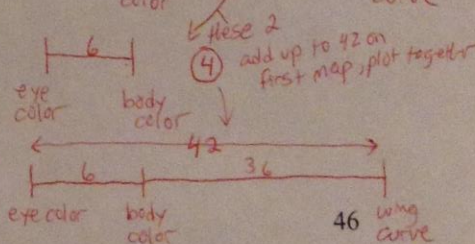 color
these 2
6
④ add up to 42 on
first map, plot together
eye
color
body
color
42
6 36
eye color body
color
wing
curve
46